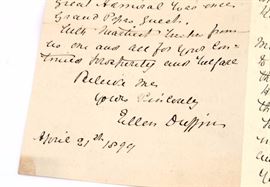 Great Admiral
Grand Papa, Guest.
With Heartiest Wishes from
us one and all for your Con-
tinued Prosperity and Welfare
Believe me
Yours Sincerely
Ellen Duffin
April 21st 1899